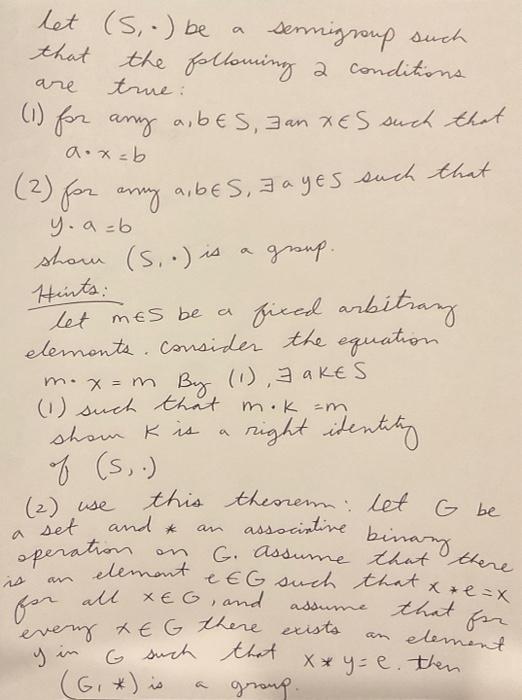 let (S, ·) be a semigroup such
that the following 2 conditions
are true:
(1) for any a,b∈S, ∃ an x∈S such that
a·x=b
(2) for any a,b∈S, ∃ a y∈S such that
y·a=b
show (S, ·) is a group.
Hints:
let m∈S be a fixed arbitrary
elements. consider the equation
m·x=m By (1), ∃ a K∈S
(1) such that m·K=m
show K is a right identity
of (S, ·)
(2) use this theorem: let G be
a set and * an associative binary
operation on G. assume that there
is an element e∈G such that x*e=x
for all x∈G, and assume that for
every x∈G there exists an element
y in G such that x*y=e. then
(G, *) is a group.